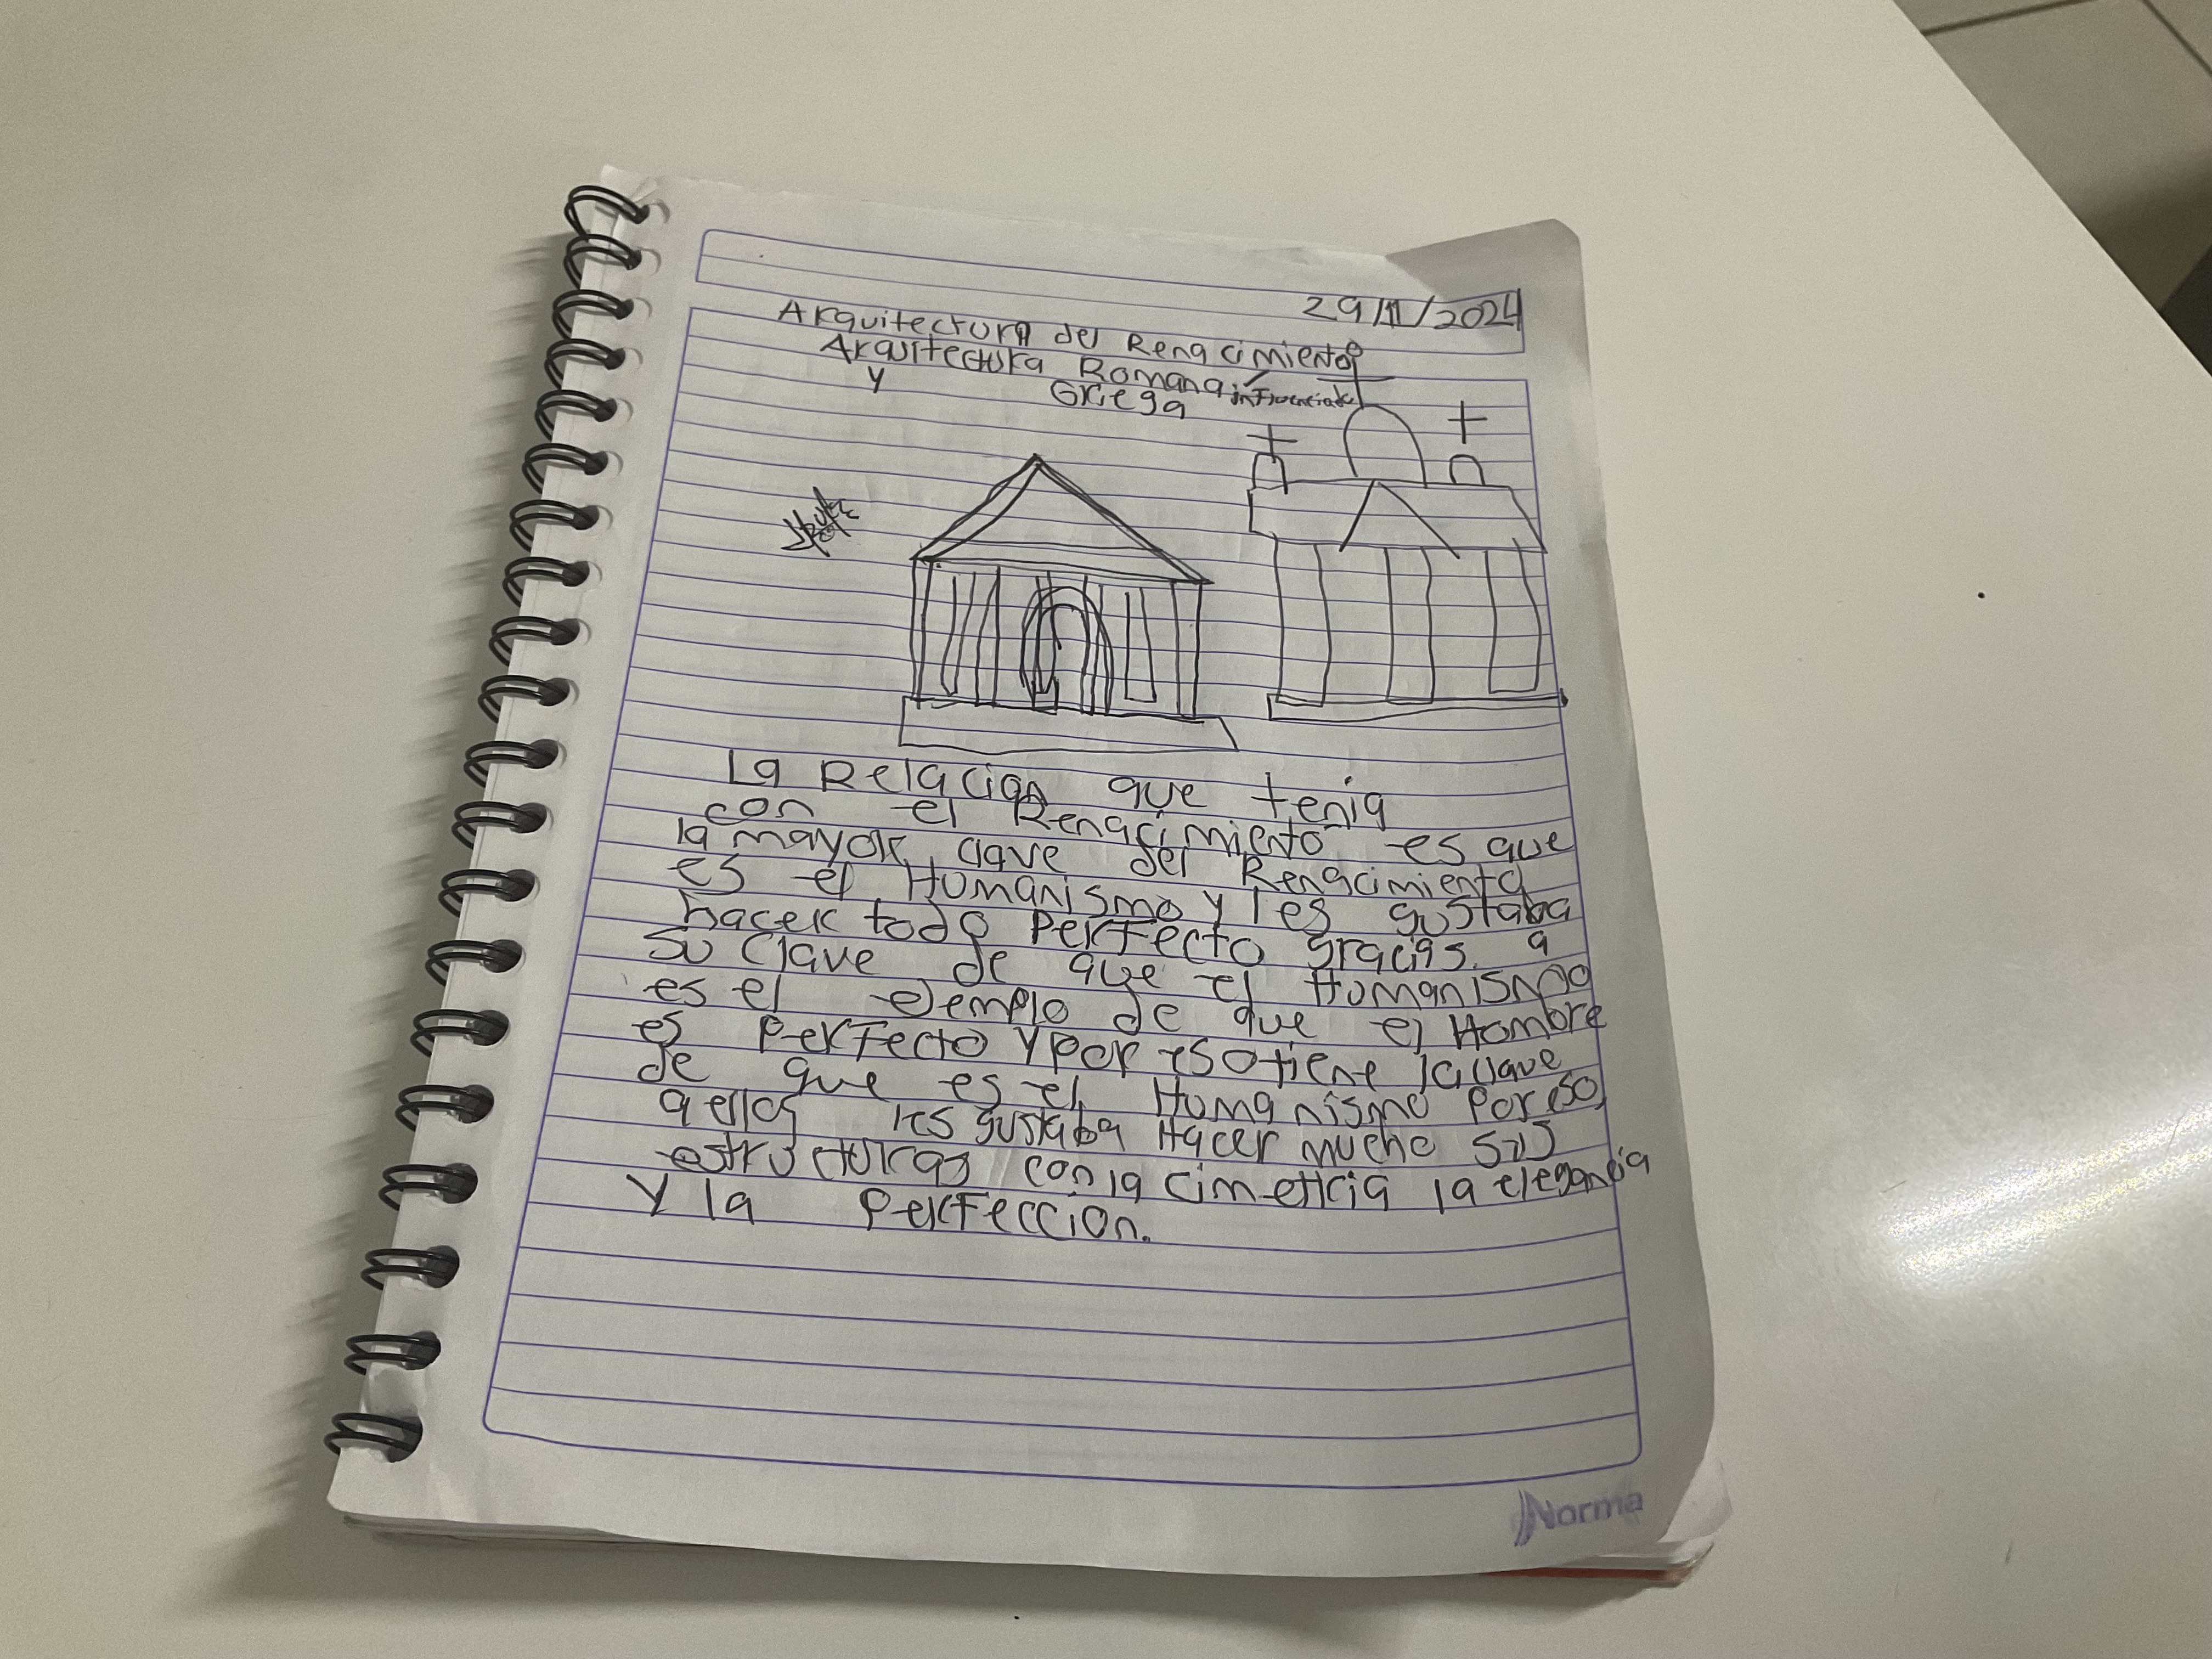 29/11/2024
Arquitectura del Renacimiento
Arquitectura Romana influenciada
y Griega
La Relacion que tenia
con el Renacimiento es que
la mayor clave del Renacimiento
es el Humanismo y les gustaba
hacer todo Perfecto gracias a
su clave de que el Humanismo
es el ejemplo de que el Hombre
es Perfecto y por eso tiene la clave
de que es el Humanismo Por eso
a ellos les gustaba Hacer mucho sus
estructuras con la cimetria la elegancia
y la Perfeccion.
Norma